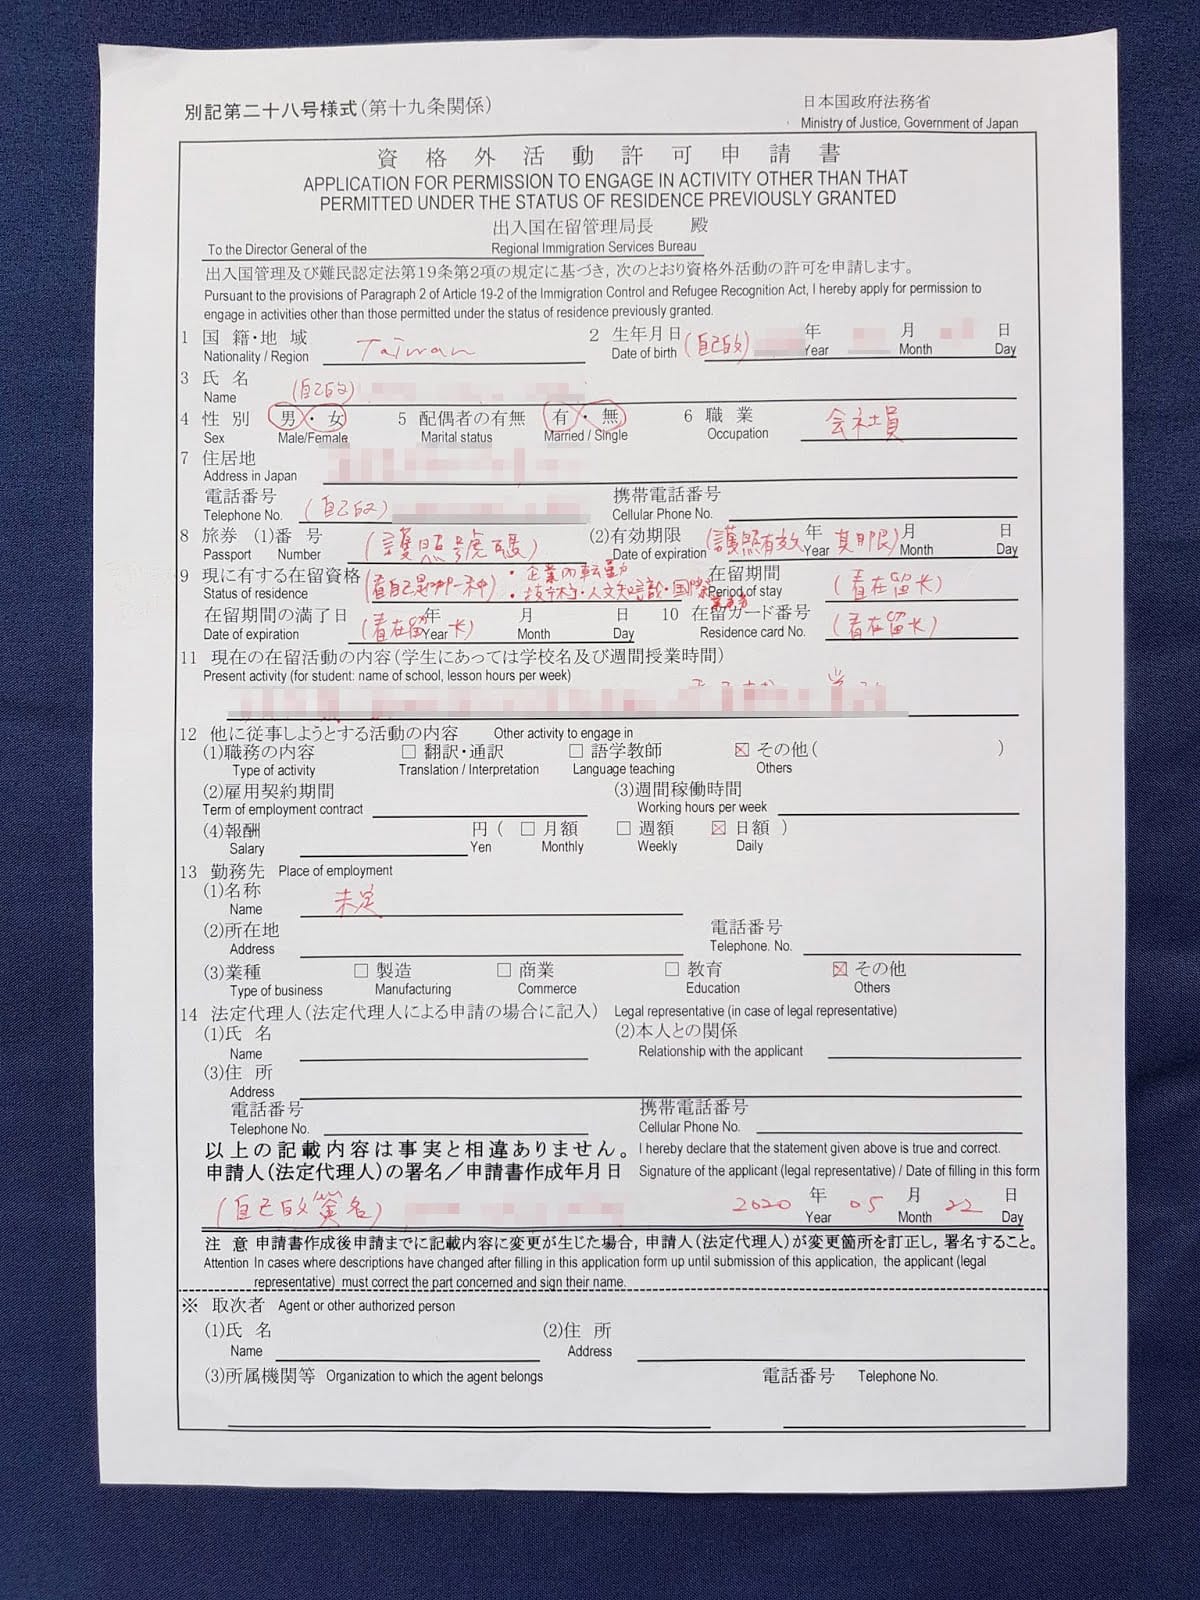 別記第二十八号様式(第十九条関係)
日本国政府法務省
Ministry of Justice, Government of Japan
資格外活動許可申請書
APPLICATION FOR PERMISSION TO ENGAGE IN ACTIVITY OTHER THAN THAT
PERMITTED UNDER THE STATUS OF RESIDENCE PREVIOUSLY GRANTED
出入国在留管理局長 殿
To the Director General of the Regional Immigration Services Bureau
出入国管理及び難民認定法第19条第2項の規定に基づき,次のとおり資格外活動の許可を申請します。
Pursuant to the provisions of Paragraph 2 of Article 19-2 of the Immigration Control and Refugee Recognition Act, I hereby apply for permission to
engage in activities other than those permitted under the status of residence previously granted.
1 国籍・地域 Taiwan 2 生年月日 (自己的) 年 月 日
Nationality / Region Date of birth Year Month Day
3 氏名 (自己的)
Name
4 性別 男・女 5 配偶者の有無 有・無 6 職業 会社員
Sex Male/Female Marital status Married / Single Occupation
7 住居地
Address in Japan
電話番号 (自己的) 携帯電話番号
Telephone No. Cellular Phone No.
8 旅券 (1)番号 (護照号碼) (2)有効期限 (護照有效期限) 年 月 日
Passport Number Date of expiration Year Month Day
9 現に有する在留資格 (看自己是哪一種) ・企業内転勤 ・技術・人文知識・国際業務 在留期間 (看在留卡)
Status of residence Period of stay
在留期間の満了日 (看在留卡) 年 月 日 10 在留カード番号 (看在留卡)
Date of expiration Year Month Day Residence card No.
11 現在の在留活動の内容(学生にあっては学校名及び週間授業時間)
Present activity (for student: name of school, lesson hours per week)
12 他に従事しようとする活動の内容 Other activity to engage in
(1)職務の内容 □ 翻訳・通訳 □ 語学教師 ☒ その他( )
Type of activity Translation / Interpretation Language teaching Others
(2)雇用契約期間 (3)週間稼働時間
Term of employment contract Working hours per week
(4)報酬 円( □ 月額 □ 週額 ☒ 日額 )
Salary Yen Monthly Weekly Daily
13 勤務先 Place of employment
(1)名称 未定
Name
(2)所在地 電話番号
Address Telephone. No.
(3)業種 □ 製造 □ 商業 □ 教育 ☒ その他
Type of business Manufacturing Commerce Education Others
14 法定代理人(法定代理人による申請の場合に記入) Legal representative (in case of legal representative)
(1)氏名 (2)本人との関係
Name Relationship with the applicant
(3)住所
Address
電話番号 携帯電話番号
Telephone No. Cellular Phone No.
以上の記載内容は事実と相違ありません。 I hereby declare that the statement given above is true and correct.
申請人(法定代理人)の署名/申請書作成年月日 Signature of the applicant (legal representative) / Date of filling in this form
(自己的簽名) 2020 年 05 月 22 日
Year Month Day
注意 申請書作成後申請までに記載内容に変更が生じた場合,申請人(法定代理人)が変更箇所を訂正し,署名すること。
Attention In cases where descriptions have changed after filling in this application form up until submission of this application, the applicant (legal
representative) must correct the part concerned and sign their name.
※ 取次者 Agent or other authorized person
(1)氏名 (2)住所
Name Address
(3)所属機関等 Organization to which the agent belongs 電話番号 Telephone No.